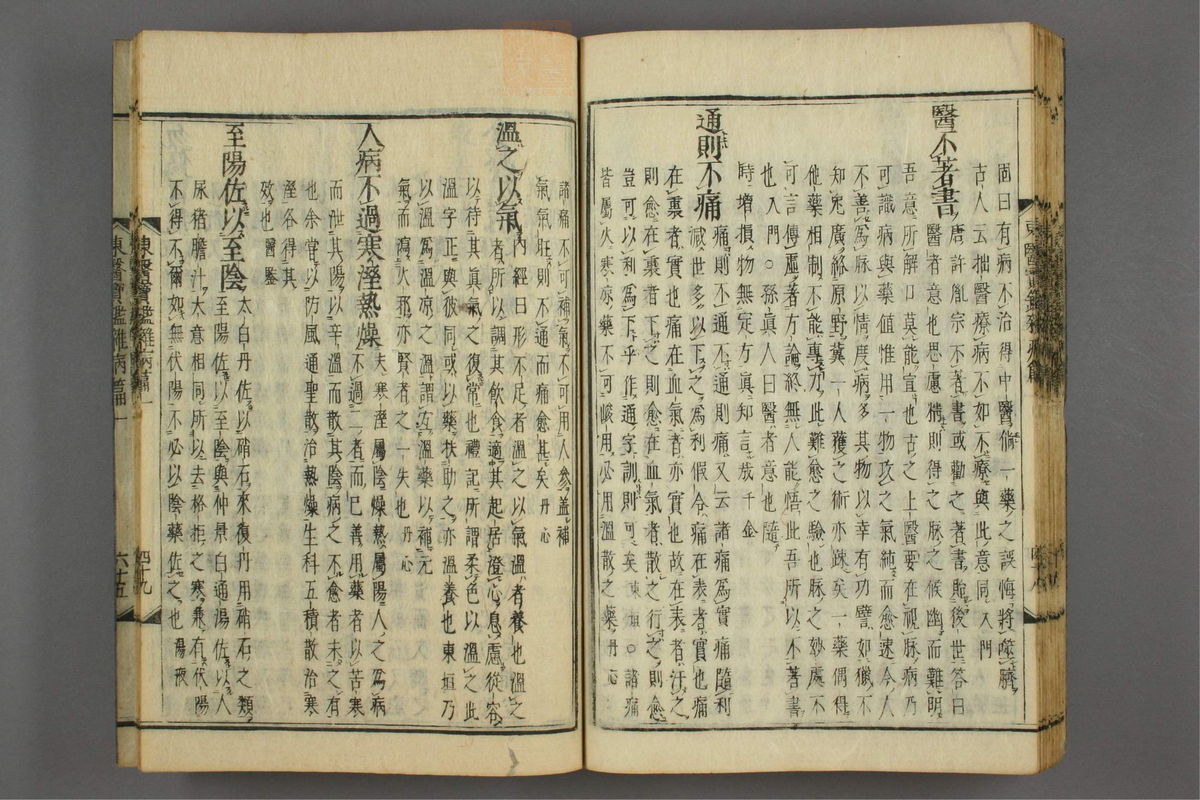 固曰有病不治得中醫倘一藥之誤悔將噬臍
古人云拙醫療病不如不療與此意同入門
醫不著書
唐許胤宗不著書或勸之著書貽後世答曰
醫者意也思慮精則得之脉之候幽而難明
吾意所解口莫能宣也古之上醫要在視脉病乃
可識病與藥值惟用一物攻之氣純而愈速今人
不善爲脉以情度病多其物以幸有功譬如獵不
知兎廣絡原野冀一人獲之術亦踈矣一藥偶得
他藥相制不能專力此難愈之驗也脉之妙處不
可言傳虛著方論終無人能悟此吾所以不著書
也入門○孫眞人曰醫者意也隨
時增損物無定方眞知言哉千金
通則不痛
痛則不通不通則痛又云諸痛爲實痛隨利
減世多以下之爲利假令痛在表者實也痛
在裏者實也痛在血氣者亦實也故在表者汗之
則愈在裏者下之則愈在血氣者散之行之則愈
豈可以利爲下乎作通字訓則可矣東垣○諸痛
皆屬火寒凉藥不可峻用必用溫散之藥丹心
諸痛不可補氣不可用人參盖補
氣氣旺則不通而痛愈甚矣丹心
溫之以氣
內經曰形不足者溫之以氣溫者養也溫之
者所以調其飮食適其起居澄心息慮從容
以待其眞氣之復常也禮記所謂柔色以溫之此
溫字正與彼同或以藥扶助之亦溫養也東垣乃
以溫爲溫凉之溫謂宜溫藥以補元
氣而瀉火邪亦賢者之一失也丹心
人病不過寒溼熱燥
夫寒溼屬陰燥熱屬陽人之爲病
不過二者而已善用藥者以苦寒
而泄其陽以辛溫而散其陰病之不愈者未之有
也余嘗以防風通聖散治熱燥生料五積散治寒
溼各得其
效也醫鑑
至陽佐以至陰
太白丹佐以硝石來復丹用硝石之類
至陽佐以至陰與仲景白通湯佐以人
尿猪膽汁大意相同所以去格拒之寒兼有伏陽
不得不爾如無伏陽不必以陰藥佐之也湯液
東醫寶鑑雜病篇一
四十九
東醫寶鑑雜病篇一
六十五